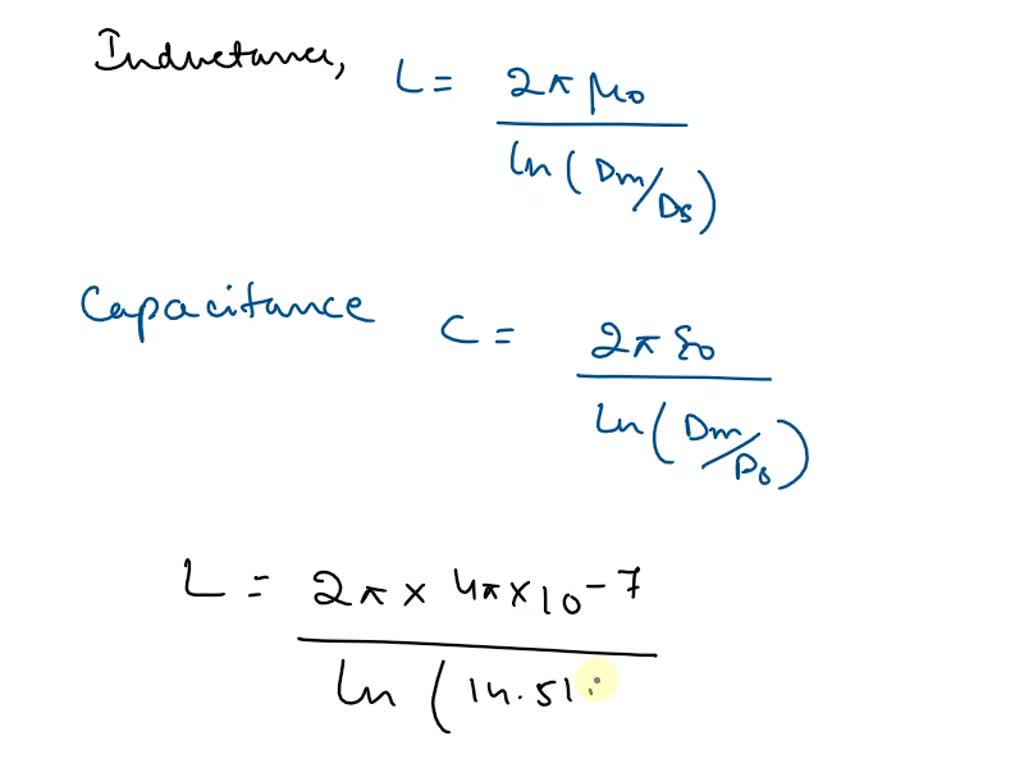 Inductance, L = 2π μ0
ln (Dm/Ds)
Capacitance C = 2π ε0
ln (Dm/Do)
L = 2π × 4π × 10-7
ln (14.51